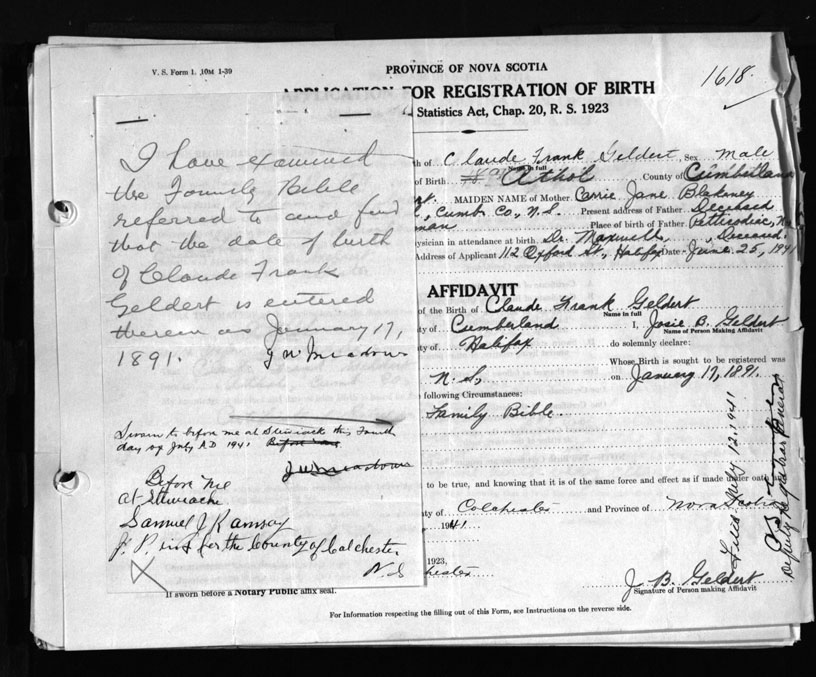 V. S. Form 1. 10M 1-39
PROVINCE OF NOVA SCOTIA
1618.
APPLICATION FOR REGISTRATION OF BIRTH
Statistics Act, Chap. 20, R. S. 1923
I have examined
the Family Bible
referred to and find
that the date of birth
of Claude Frank
Geldert is entered
therein as January 17,
1891.
G W Meadows
Sworn to before me at Stewiacke this Fourth
day of July A D 1941
Before me
at Stewiacke
Samuel J Ramsay
J. P. in & for the County of Colchester
N.S
th of Claude Frank Geldert Sex Male
Name in full
of Birth Athol County of Cumberland
MAIDEN NAME of Mother Carrie Jane Blakeney
, Cumb. Co., N.S. Present address of Father Deceased
man Place of birth of Father Petticodiac, N.B.
ysician in attendance at birth Dr. Maxwell, Deceased.
Address of Applicant 112 Oxford St., Halifax Date June 25, 1941
AFFIDAVIT
of the Birth of Claude Frank Geldert
Name in full
ty of Cumberland I, Josie B. Geldert
Name of Person Making Affidavit
ty of Halifax do solemnly declare:
Whose Birth is sought to be registered was
N.S. on January 17, 1891.
following Circumstances:
Family Bible.
to be true, and knowing that it is of the same force and effect as if made under oath
ty of Colchester and Province of Nova Scotia
1941
1923,
chester
J. B. Geldert
Signature of Person making Affidavit
If sworn before a Notary Public affix seal.
For Information respecting the filling out of this Form, see Instructions on the reverse side.
Filed July 12. 1941
Deputy Registrar General